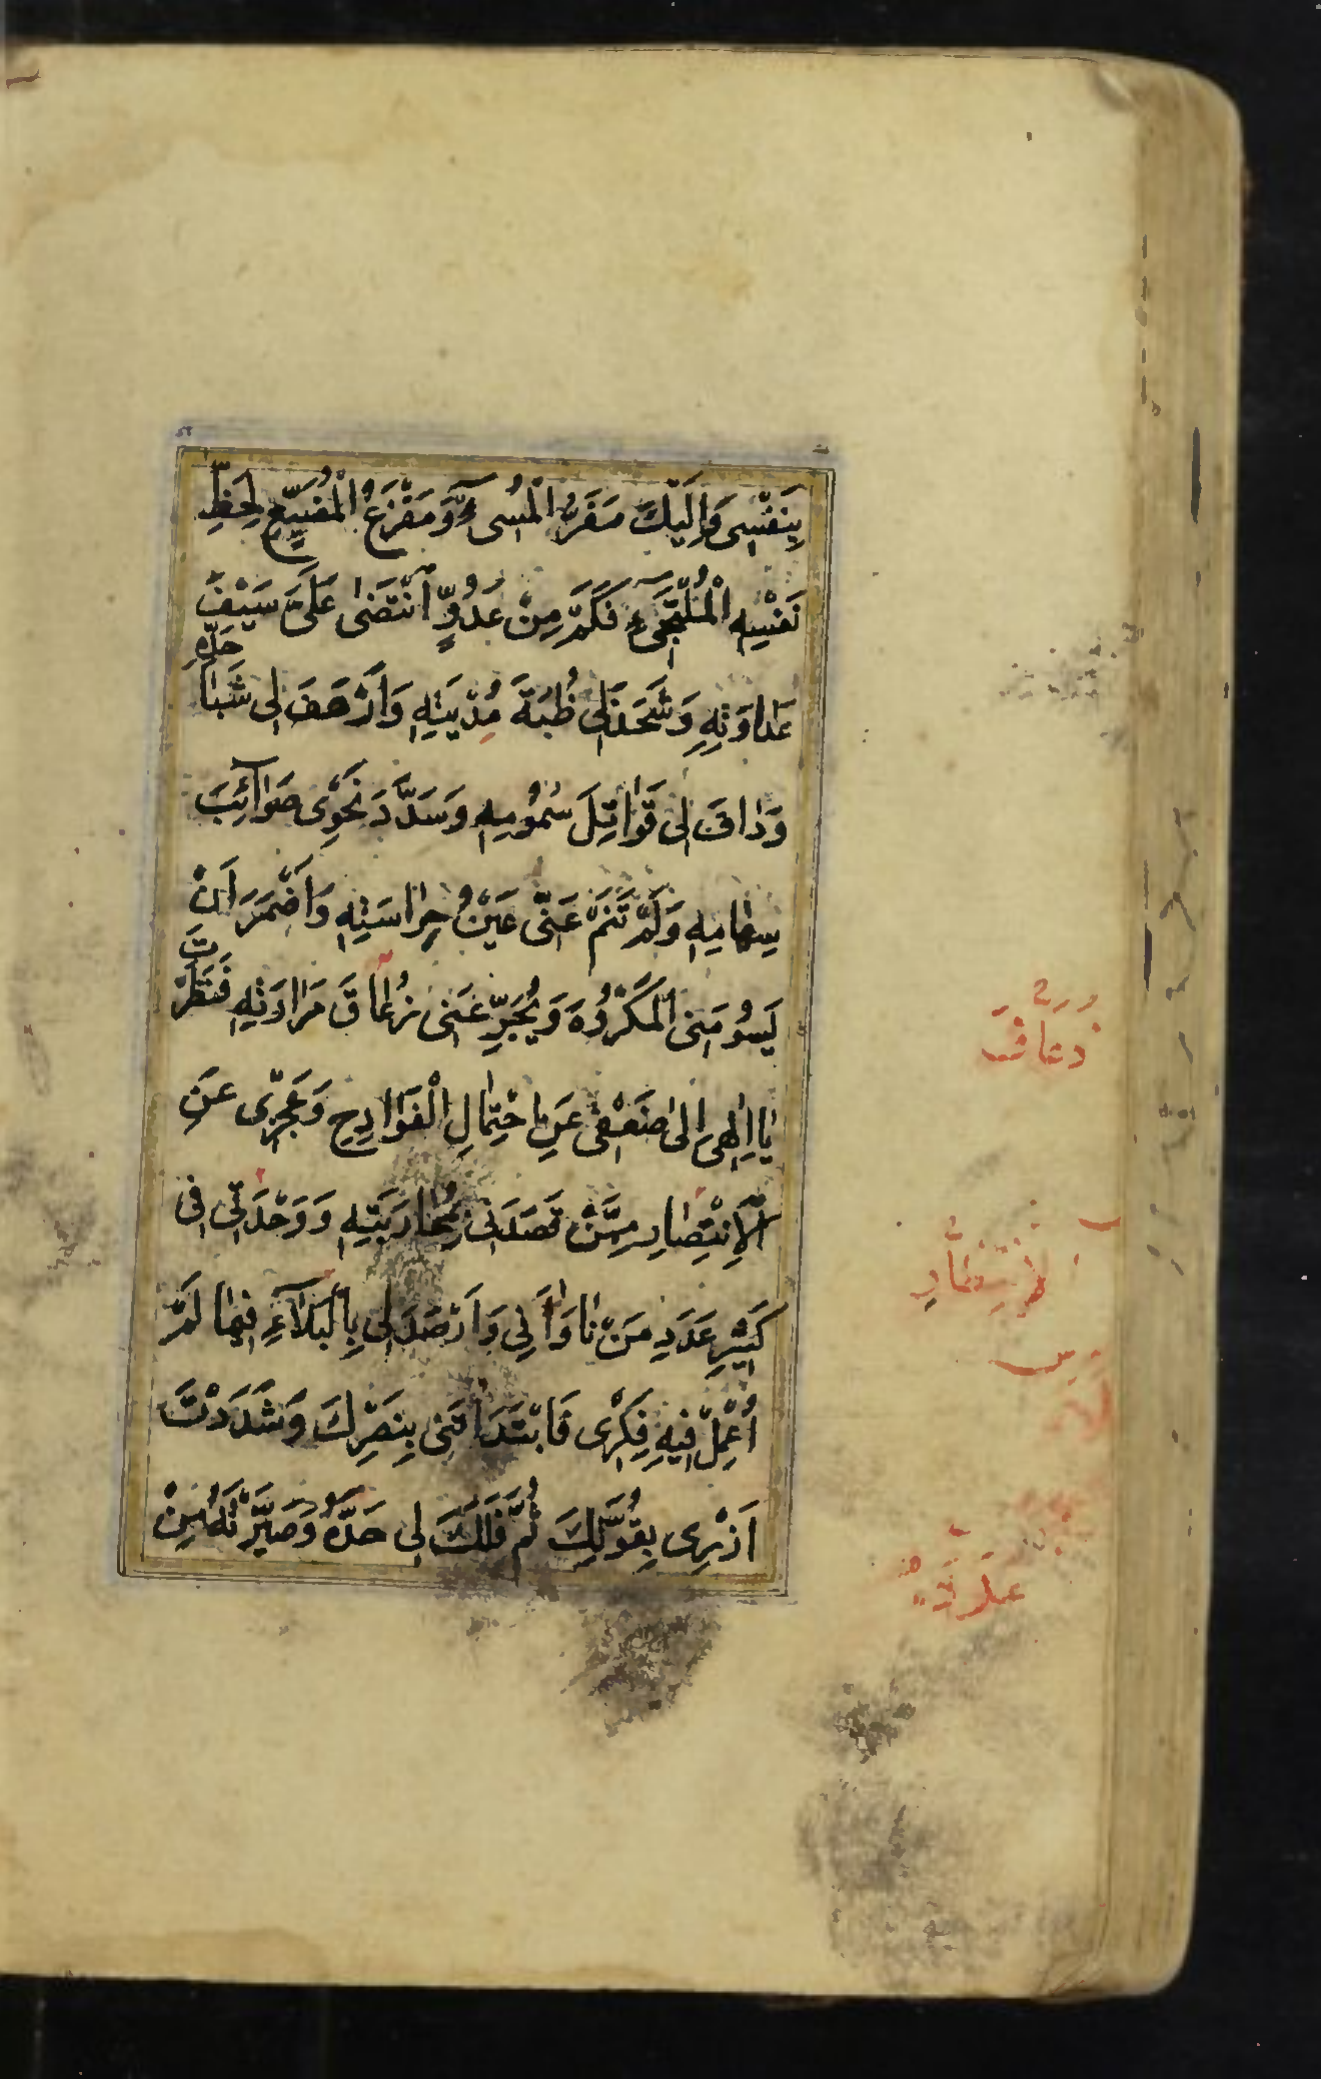 بِنَفْسِى وَاِلَيْكَ مَفَرُّ الْمُسىءِ وَمَفْزَعُ الْمُضَيِّعِ لِحَظِّ
نَفْسِهِ الْمُلْتَجِىءِ فَكَمْ مِنْ عَدُوٍّ انْتَضٰى عَلَىَّ سَيْفَ
عَدٰاوَتِهِ وَشَحَذَ لى ظُبَةَ مُدْيَتِهِ وَاَرْهَفَ لى شَبٰا حَدِّهِ
وَدٰافَ لى قَوٰاتِلَ سُمُومِهِ وَسَدَّدَ نَحْوِى صَوٰآئِبَ
سِهٰامِهِ وَلَمْ تَنَمْ عَنّى عَيْنُ حِرٰاسَتِهِ وَاَضْمَرَ اَنْ
يَسُومَنِى الْمَكْرُوهَ وَيُجَرِّعَنى زُعٰاقَ مَرٰارَتِهِ فَنَظَرْتَ
يٰا اِلٰهى اِلٰى ضَعْفى عَنِ احْتِمٰالِ الْفَوٰادِحِ وَعَجْزِى عَنِ
الْاِنْتِصٰارِ مِمَّنْ قَصَدَنى بِمُحٰارَبَتِهِ وَوَحْدَتى فى
كَثيرِ عَدَدِ مَنْ نٰاوٰانى وَاَرْصَدَ لى بِالْبَلآءِ فيمٰا لَمْ
اُعْمِلْ فيهِ فِكْرى فَابْتَدَاْتَنى بِنَصْرِكَ وَشَدَدْتَ
اَزْرِى بِقُوَّتِكَ ثُمَّ فَلَلْتَ لى حَدَّهُ وَصَيَّرْتَهُ مِنْ